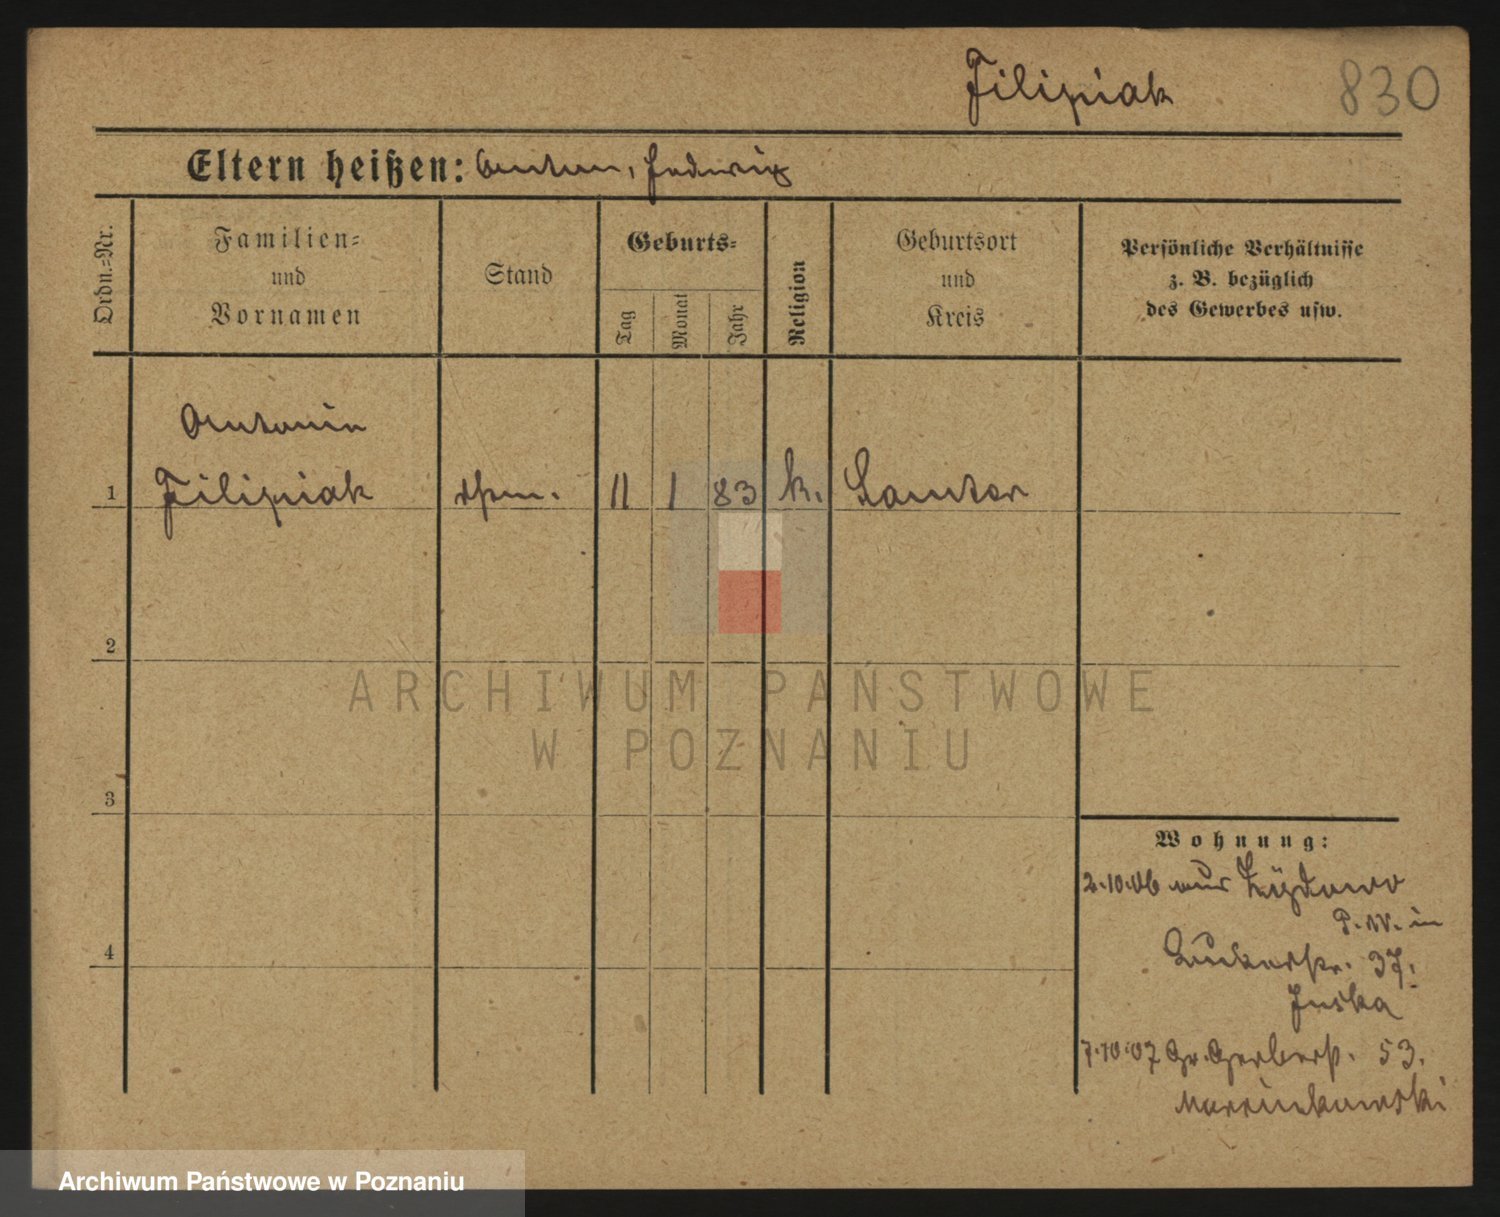 Filipiak 830
Eltern heißen: Anton, Hedwig
Ordn.-Nr.
Familien-
und
Vornamen
Stand
Geburts-
Tag
Monat
Jahr
Religion
Geburtsort
und
Kreis
Persönliche Verhältnisse
z. B. bezüglich
des Gewerbes usw.
Antonin
1 Filipiak 11 1 83 k. Samter
2
3
4
Wohnung:
2.10.06 aus
P. W. in
37.
7.10.07 Gr. Gerberst. 53.
Marcinkowski
ARCHIWUM PAŃSTWOWE
W POZNANIU
Archiwum Państwowe w Poznaniu